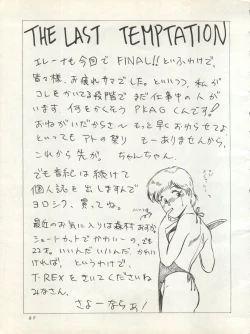 THE LAST TEMPTATION
エレーナも今回で FINAL!! というわけで、
皆々様、お疲れサマでした。といいつつ、私が
コレをかいてる段階で まだ仕事中の人が
います。何をかくそう PKAGくんです!
おねがいだからさ〜 もっと早くおわらせてよ
といっても アトの祭り もーありませんから、
これから先が。 ちゃんちゃん。
でも 紀は続けて
個人誌を出しますんで
ヨロシク、買ってね。
最近のお気に入りは森村
ショートカットでかわいーの、でも
22才。いいんだ いいんだ、かわい
ければ、というわけで、
T-REXをきいてくださいね
みなさん。
さよーならぁ!